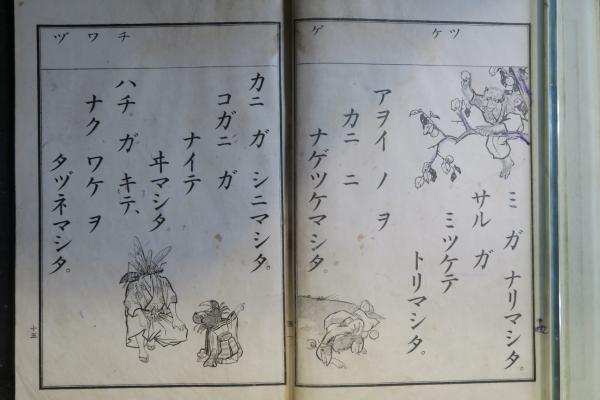 ツ ケ
ゲ
ミ ガ ナリマシタ。
サル ガ
ミツケテ
トリマシタ。
アヲイ ノ ヲ
カニ ニ
ナゲツケマシタ。
チ ワ ヅ
カニ ガ シニマシタ。
コガニ ガ
ナイテ
ヰマシタ。
ハチ ガ キテ、
ナク ワケ ヲ
タヅネマシタ。
十五